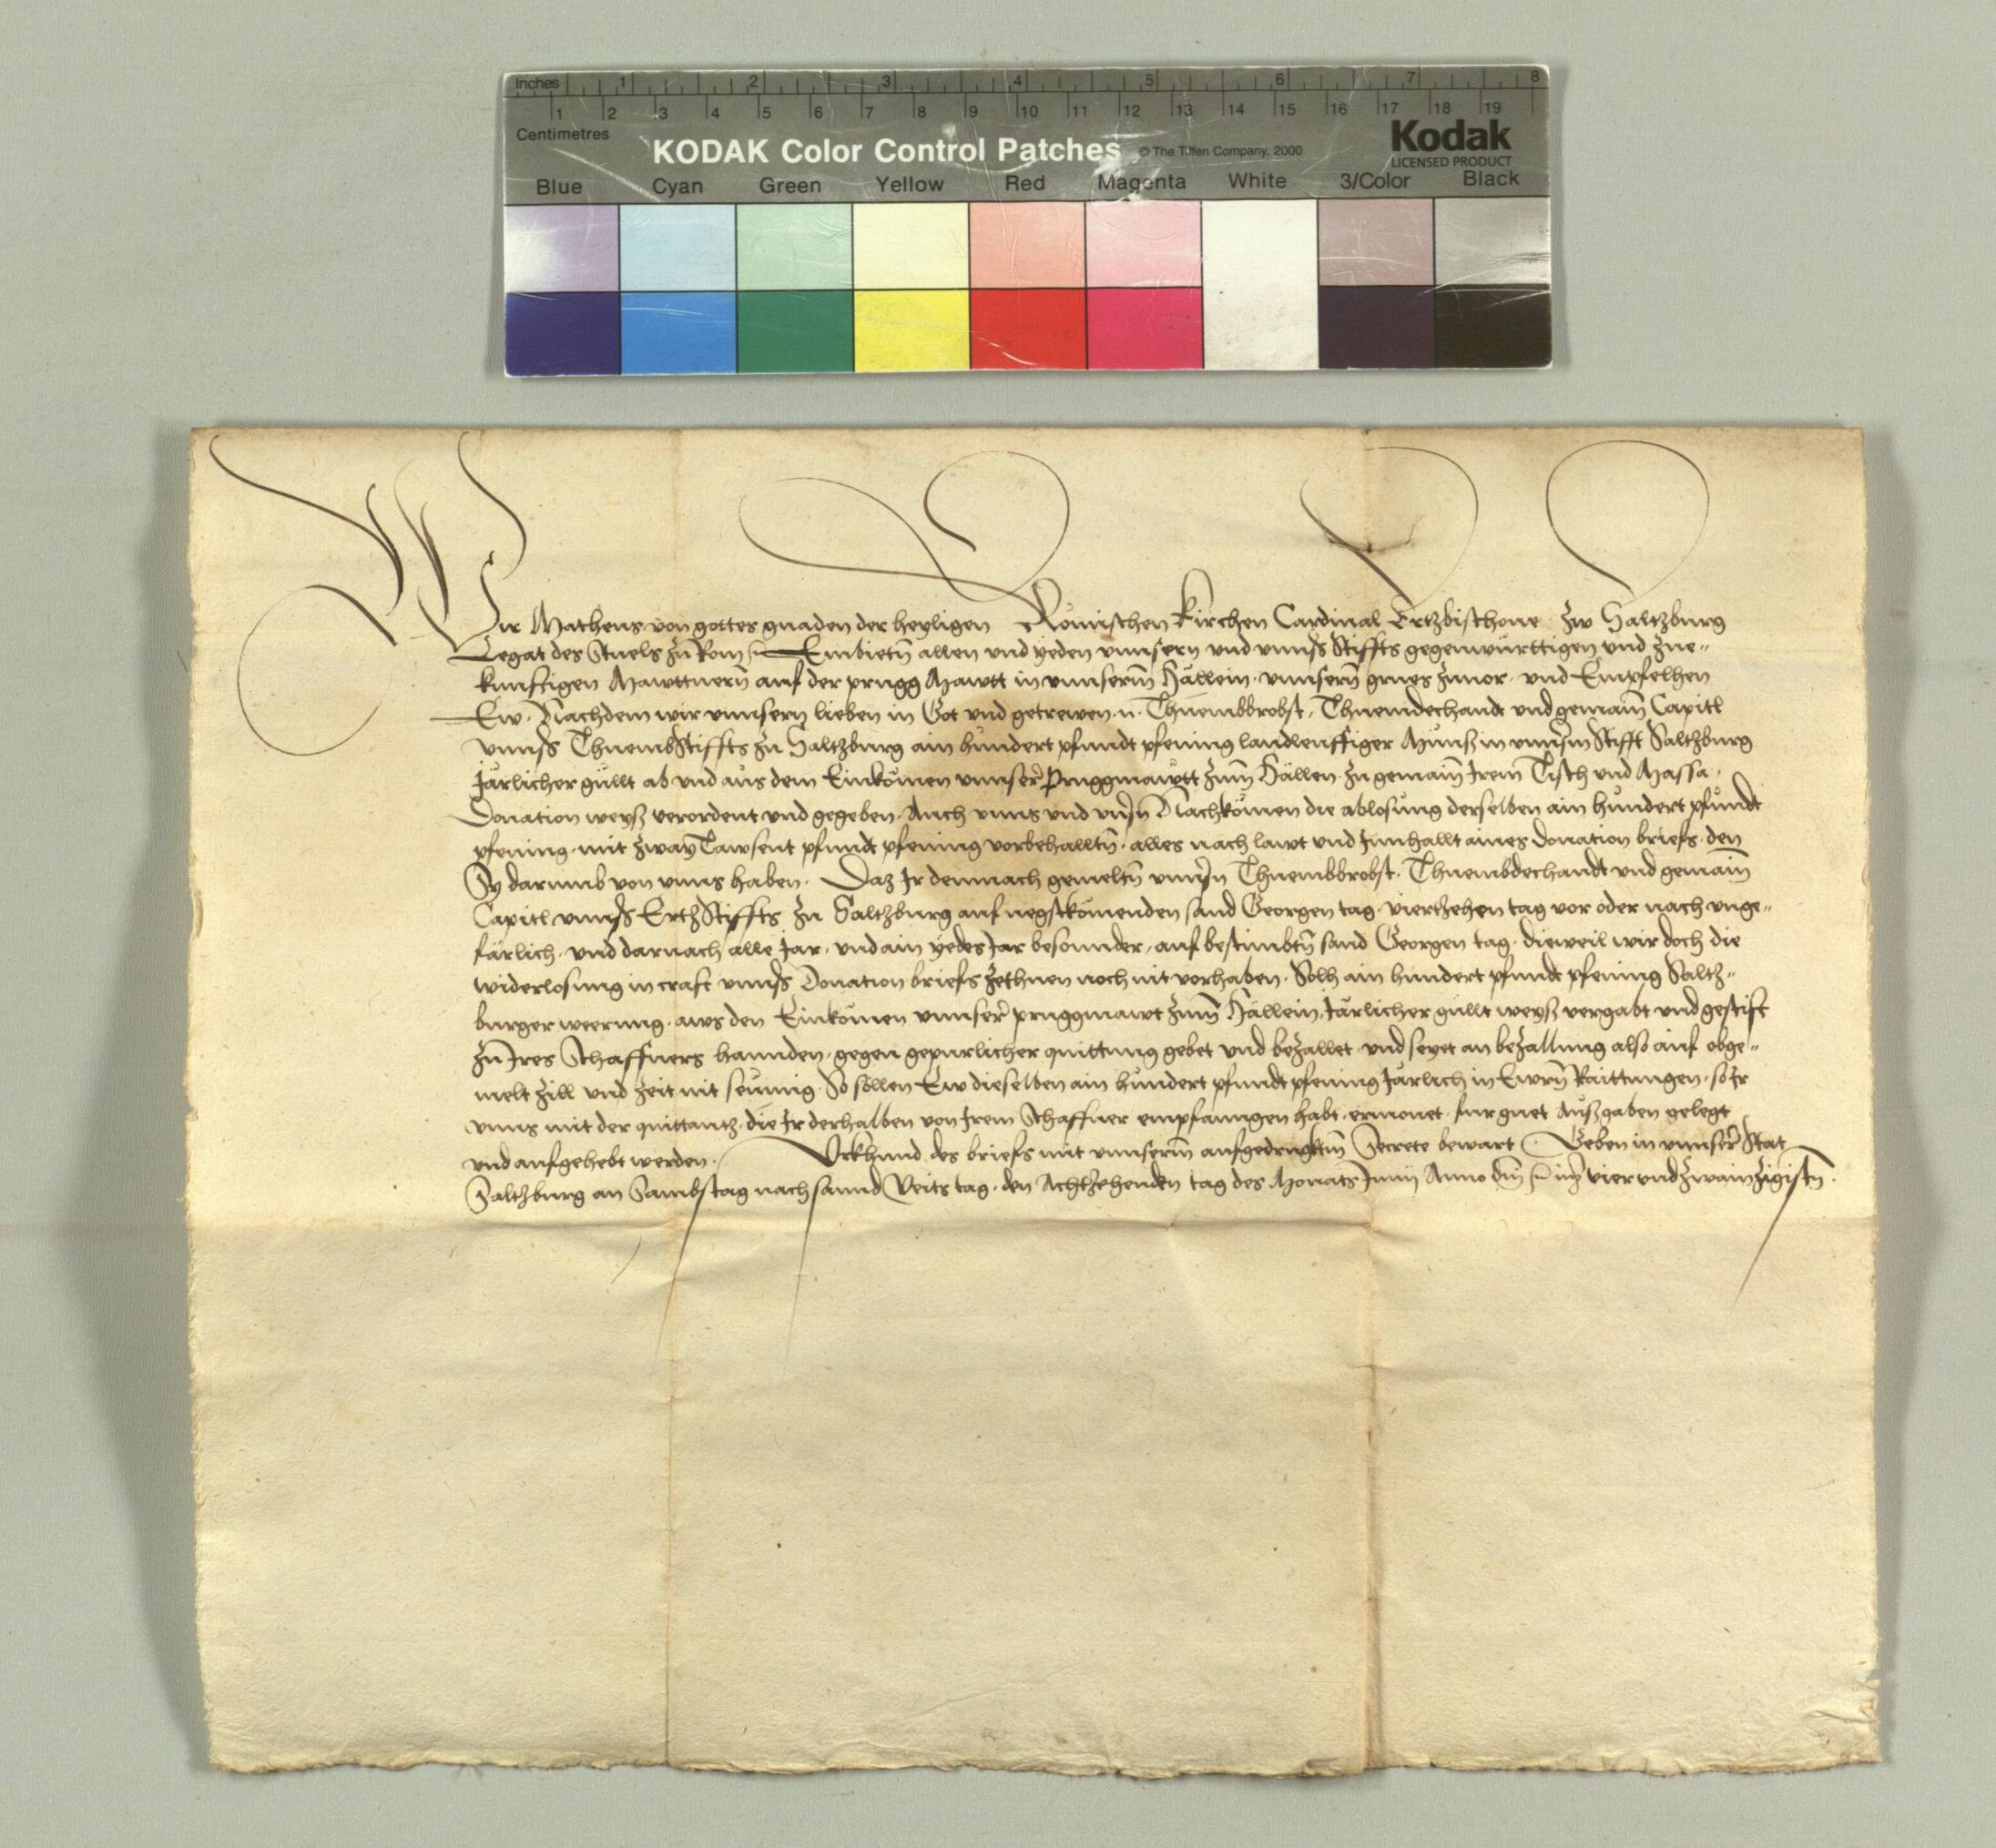 Inches 1 2 3 4 5 6 7 8
1 2 3 4 5 6 7 8 9 10 11 12 13 14 15 16 17 18 19
Centimetres
KODAK Color Control Patches © The Tiffen Company, 2000 Kodak
LICENSED PRODUCT
Blue Cyan Green Yellow Red Magenta White 3/Color Black
Wir Matheus von gottes gnaden der heyligen Römischen Kirchen Cardinal Ertzbischove zw Saltzburg
Legat des Stuels zu Rom Embietn̄ allen und yeden unnsern und unnsers Stiffts gegenwürttigen und zue-
kunftigen Mawttnern̄ auf der prugg Mawtt in unnserm̄ Hällein. unnsern̄ grues zuvor. und Empfelhen
Ew. Nachdem wir unnsern lieben in Got und getrewen. n. Thuembbrobst, Thuemdechandt und gemain̄ Capitl
unnsers ThuembStiffts zu Saltzburg ain hundert pfundt pfening landleuffiger Munss in unnserm Stifft Saltzburg
Järlicher güllt ab und aus dem Einkomen unnser̄ Pruggmawtt zum̄ Hällen. zu gemain̄ Irem̄ Tisch und Massa,
Donation weyss verordent und gegeben. Auch unns und unsern̄ Nachkomen die ablosung derselben ain hundert pfundt
pfening. mit zway Tawsent pfundt pfening vorbehalltn̄. alles nach lawt und Innhallt aines donation briefs. den
Sy darumb von unns haben. Daz Ir demnach gemeltn̄ unnsern Thuembbrobst. Thuembdechandt und gemain̄
Capitl unnsers ErtzStiffts zu Saltzburg auf negstkomenden sand Georgen tag. viertzehen tag vor oder nach unge-
färlich. und darnach alle Jar. und ain yedes Jar besonnder, auf bestimbtn̄ sand Georgen tag. dieweil wir doch die
widerlosung in craft unnsers Donation briefs zethuen noch nit vorhaben. Solh ain hundert pfundt pfening Saltz-
burger weerung. aws den Einkomen unnser̄ pruggmawt zum̄ Hällein, Järlicher güllt weyss vergabt und gestift
zu Ires Schaffners hannden. gegen gepurlicher quittung gebet und bezallet. und seyet an bezallung also auf obge-
melt zill und zeit nit seumig. So söllen Ew dieselben ain hundert pfundt pfening Järlich in Ewrn̄ Raittungen. so Ir
unns mit der quittantz. die Ir derhalben von Irem Schaffner empfanngen habt. ermonet. fur guet Aussgaben gelegt
und aufgehebt werden. Urkhund des briefs mit unnserm̄ aufgedrugktm̄ Secrete bewart. Geben in unnser̄ Stat
Saltzburg an Sambstag nach sannd Veits tag. den Achtzehenden tag des Monats Junij Anno dm̄ im̄ vierundzwainzigistn̄.